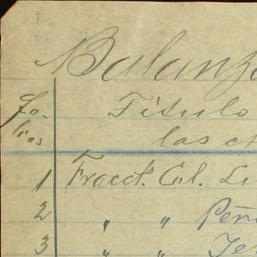 Balanz
Fo-
lios
Título
las c
1 Fracct. Col. L
2 " " Peñ
3 " "